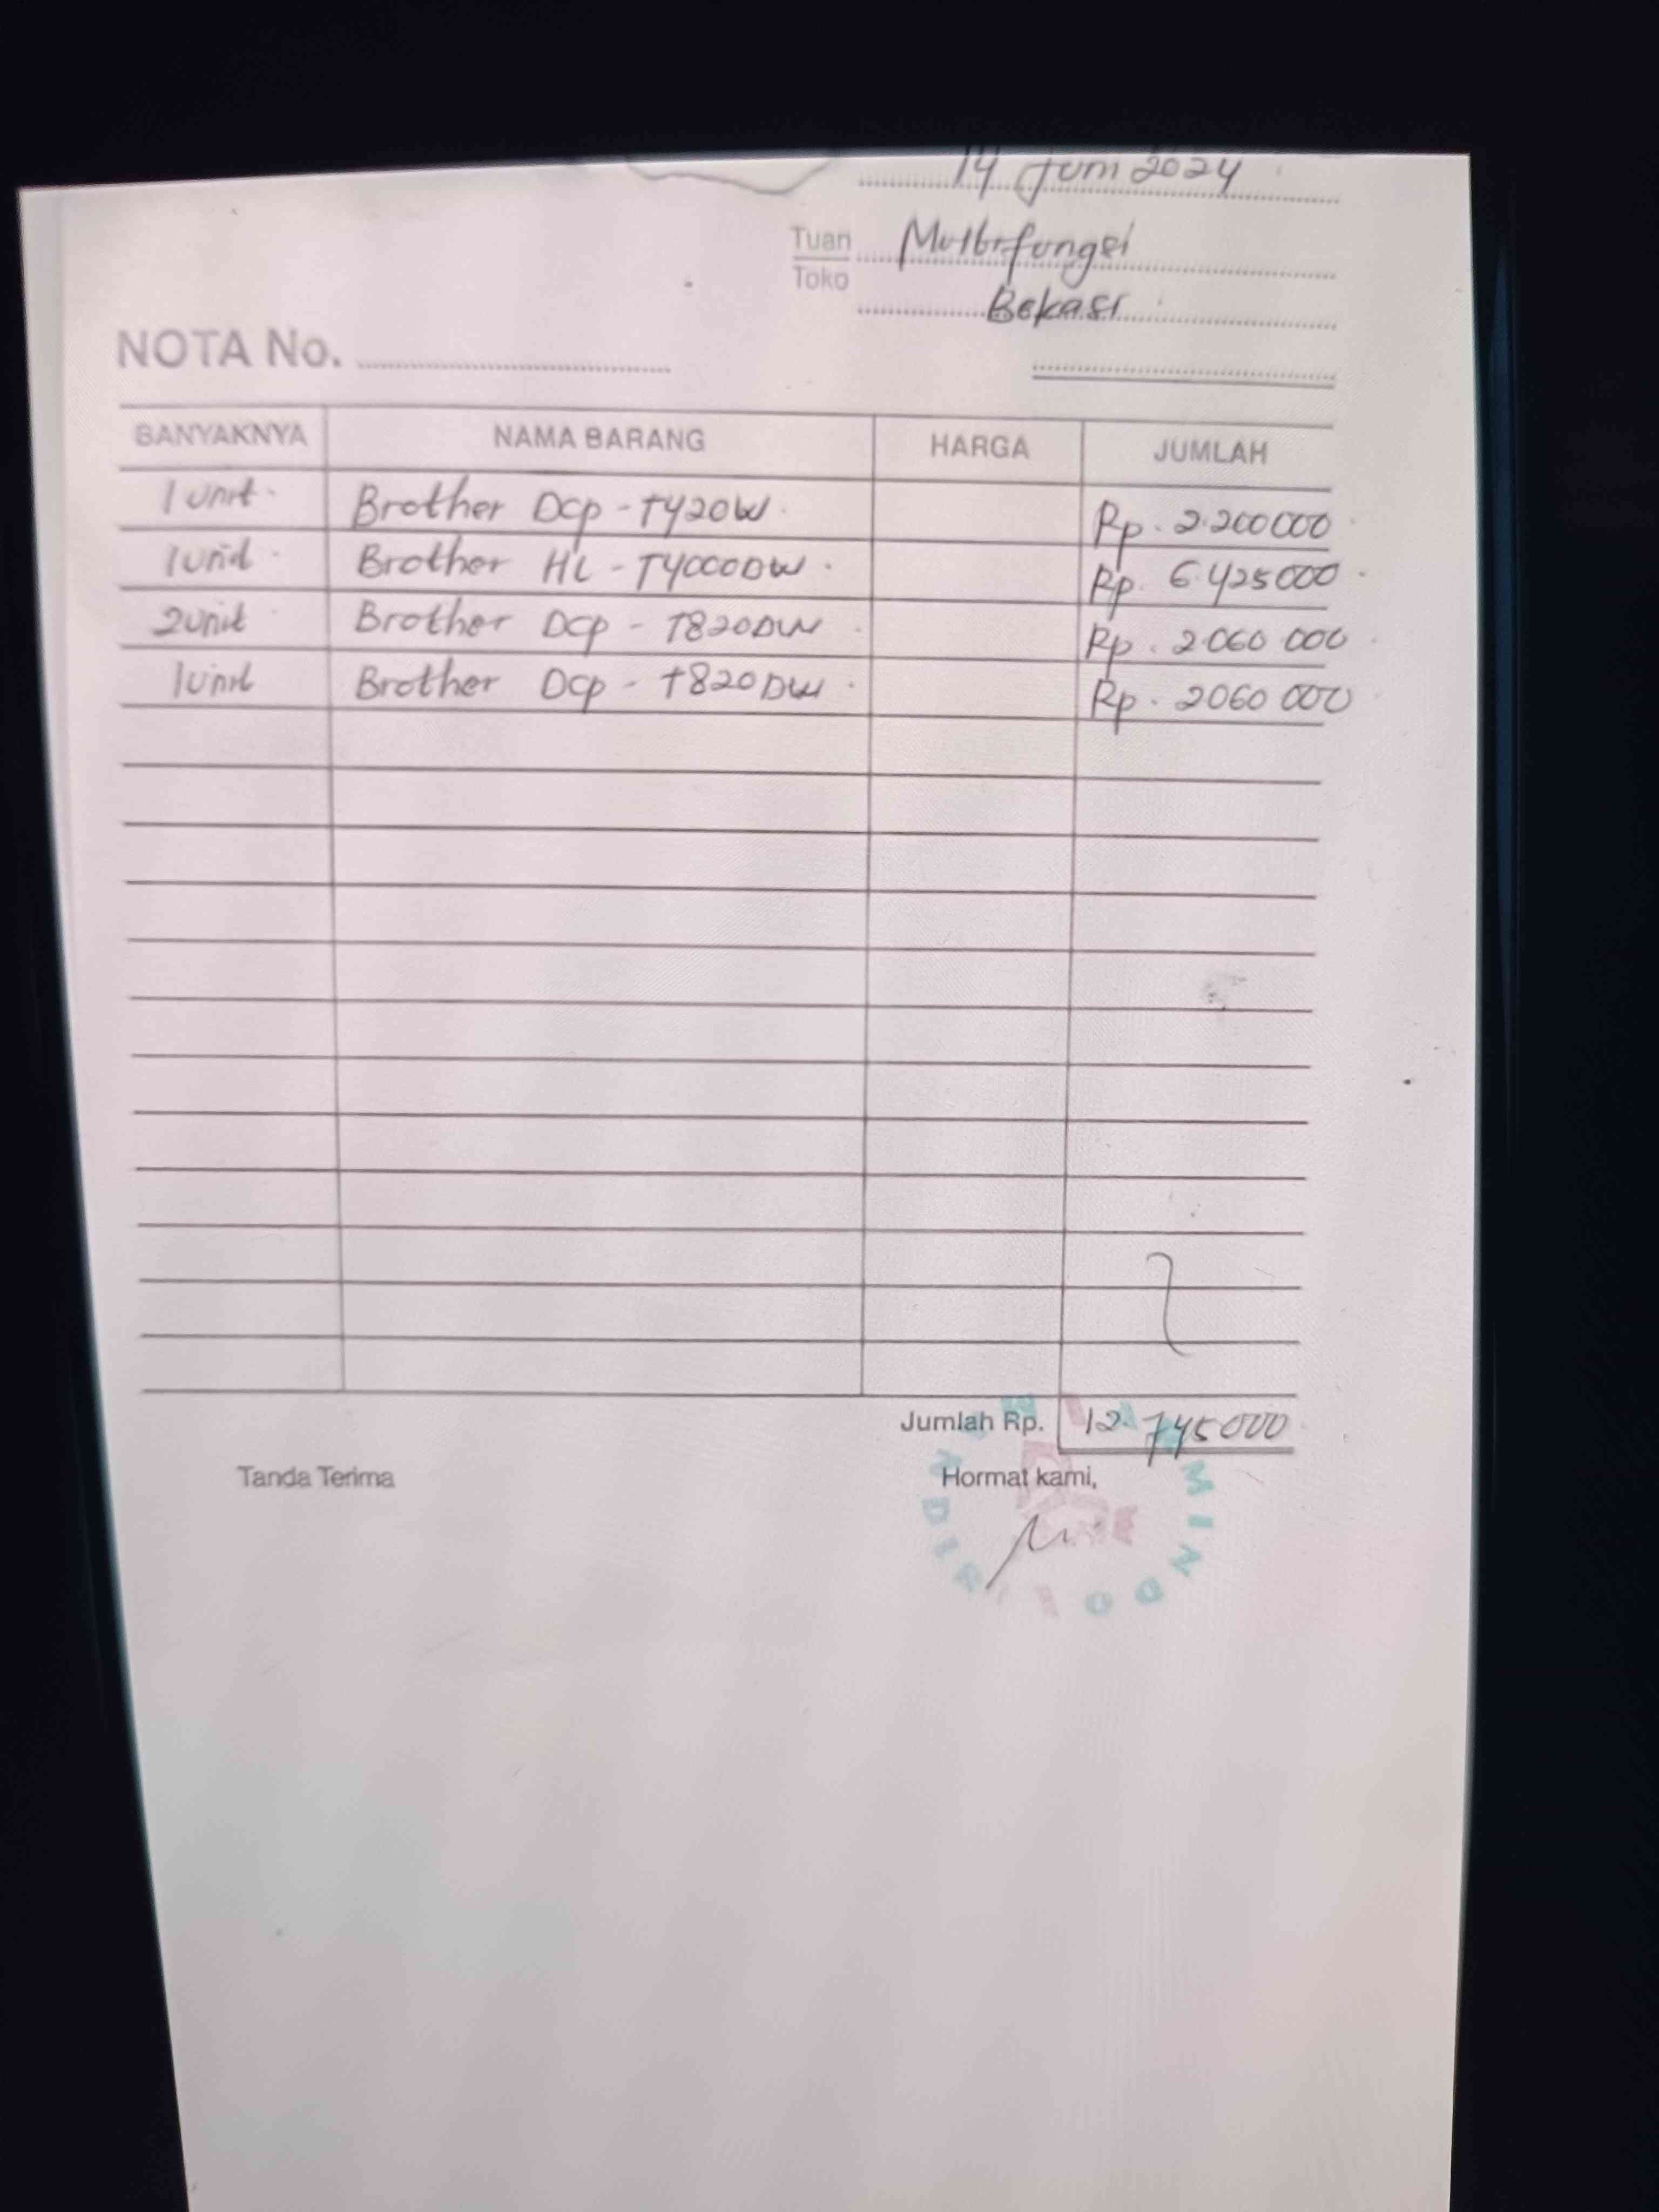 14 Juni 2024
Tuan Multifungsi
Toko
Bekasi
NOTA No.
BANYAKNYA NAMA BARANG HARGA JUMLAH
1 unit Brother Dcp - T420W Rp. 2.200000
1 unit Brother HL - T4000DW Rp. 6.425000
2 unit Brother Dcp - T820DW Rp. 2.060 000
1 unit Brother Dcp - T820DW Rp. 2060 000
Jumlah Rp. 12.745000
Tanda Terima Hormat kami,